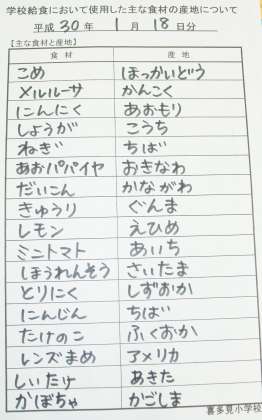 学校給食において使用した主な食材の産地について
平成 30 年 1 月 18 日分
【主な食材と産地】
食 材 産 地
こめ ほっかいどう
メルルーサ かんこく
にんにく あおもり
しょうが こうち
ねぎ ちば
あおパパイヤ おきなわ
だいこん かながわ
きゅうり ぐんま
レモン えひめ
ミニトマト あいち
ほうれんそう さいたま
とりにく しずおか
にんじん ちば
たけのこ ふくおか
レンズまめ アメリカ
しいたけ あきた
かぼちゃ かごしま
喜多見小学校